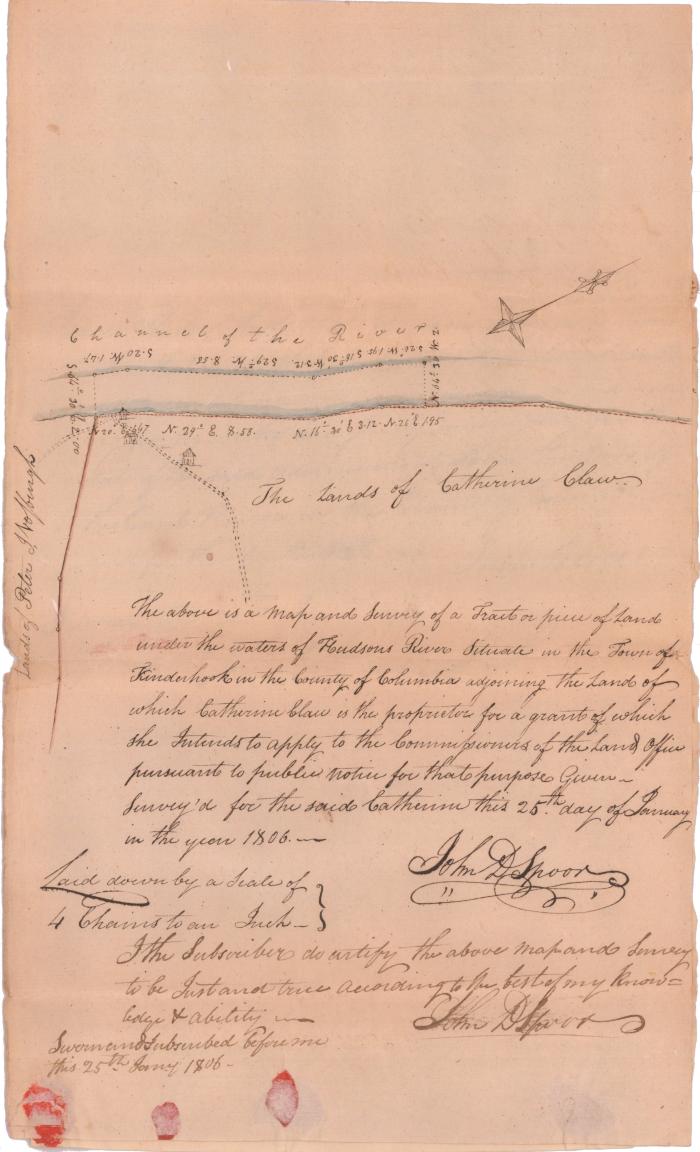 Channel of the River
S. 20 W. 1.47 S 29° W. 8.58 S 16° 30' W 3.12. S 26° W. 1.95
N. 64° 30' W. 2.
S. 64° 30' E. 2.00
N 20. E. 1.47 N. 29° E. 8.58. N. 16° 30' E 3.12. N. 26° E 1.95
Lands of Peter I Vosburgh
The Lands of Catherine Claw.
The above is a Map and Survey of a Tract or piece of Land
under the waters of Hudsons River Situate in the Town of
Kinderhook in the County of Columbia adjoining the Land of
which Catherine Claw is the proprietor for a grant of which
she Intends to apply to the Commissioners of the Land Office
pursuant to public notice for that purpose Given—
Survey'd for the said Catherine this 25th day of January
in the year 1806.—
John D Spoor
Laid down by a Scale of
4 Chains to an Inch—
I the Subscriber do certify the above map and Survey
to be Just and true acording to the best of my Know=
ledge & ability —
John D Spoor
Sworn and subscribed before me
this 25th Jany 1806—